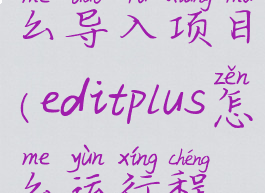 me dǎo rù xiàng mù
么导入项目
zěn
(editplus怎
me yùn xíng chéng
么运行程